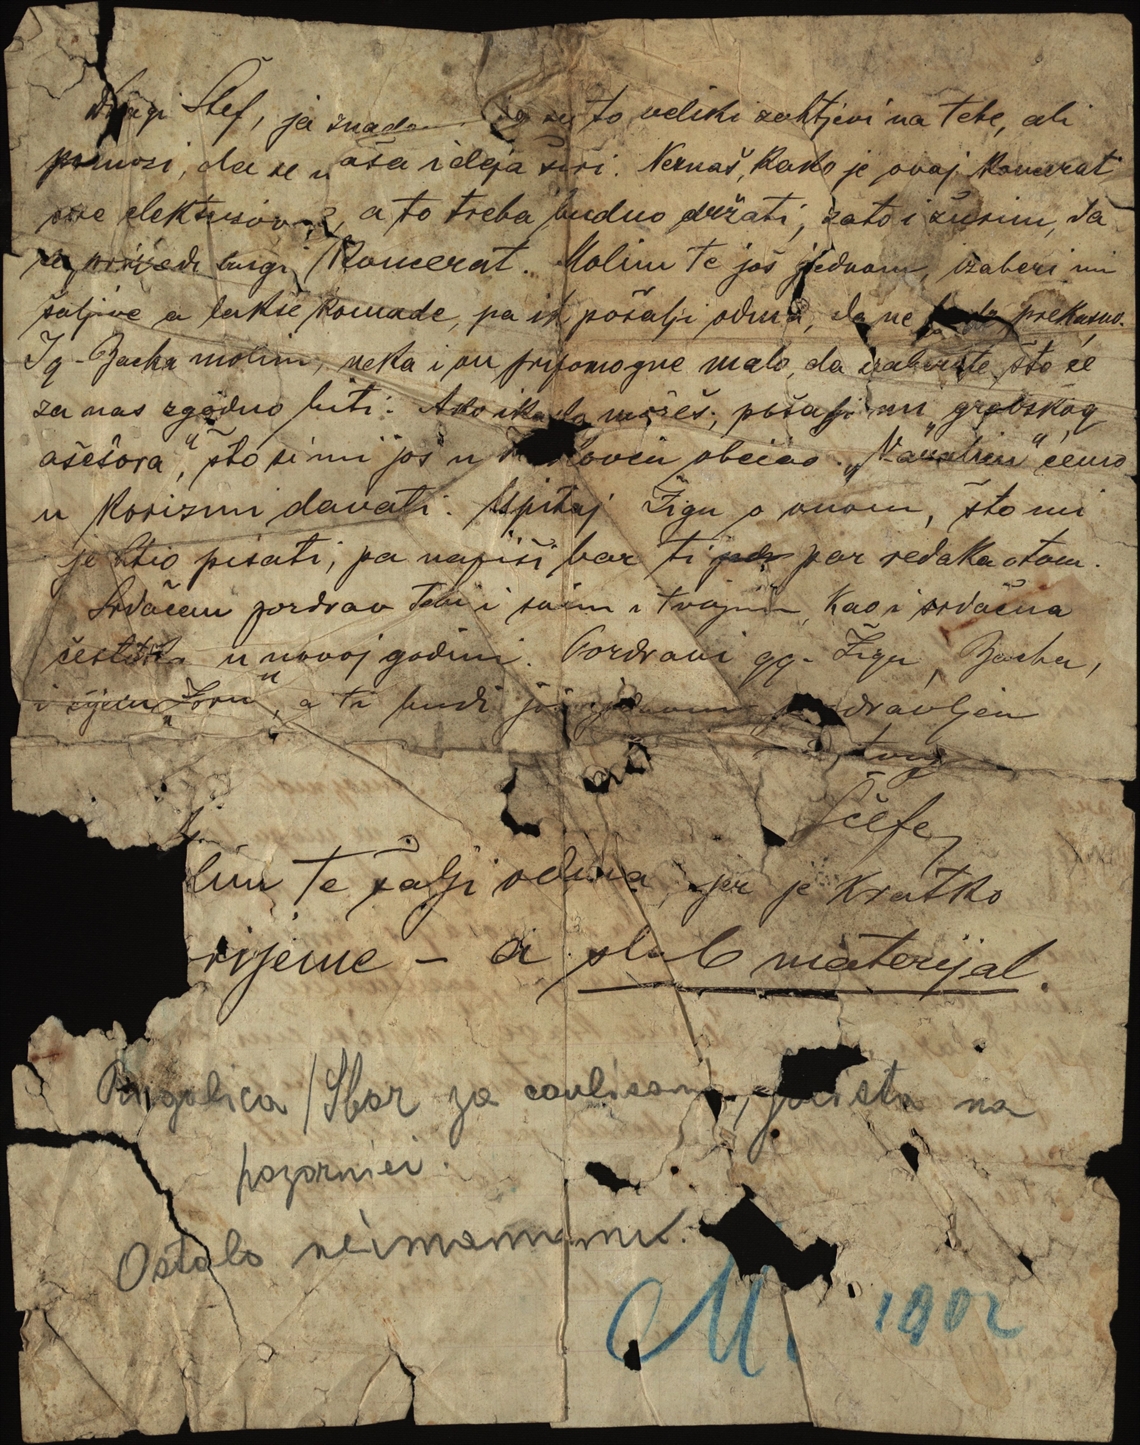 Dragi Štef, ja znadem da su to veliki zahtjevi na tebe, ali
pomozi, da se naša ideja širi. Neznaš, kako je ovaj koncerat
sve a to treba budno držati, zato i žurim, da
se priredi drugi koncerat. Molim te još jednom, izaberi mi
šaljive a lakše komade, pa ih pošalji odma, da ne bude prekasno.
I g. Bacha molim, neka i on pripomogne malo, da izaberete, što će
za nas zgodno biti. Ako ikada možeš, pošalji mi „grobskog
ašešora", što si mi još u obećao. ćemo
u korizmi davati. Upitaj Žigu o onom, što mi
je htio pisati, pa napiši bar ti par redaka o tom.
Srdačan pozdrav Tebi i svim i tvojim, kao i srdačna
čestitka u novoj godini. Pozdravi gg. Žigu, Bacha,
i cijelu „Zoru", a ti budi još jednom pozdravljen
od tvog
Štefe
lim te šalji odma, jer je kratko
rijeme – a slab materijal.
/ Zbor za na
pozornici.
Ostalo neimamamo.
M. 1902